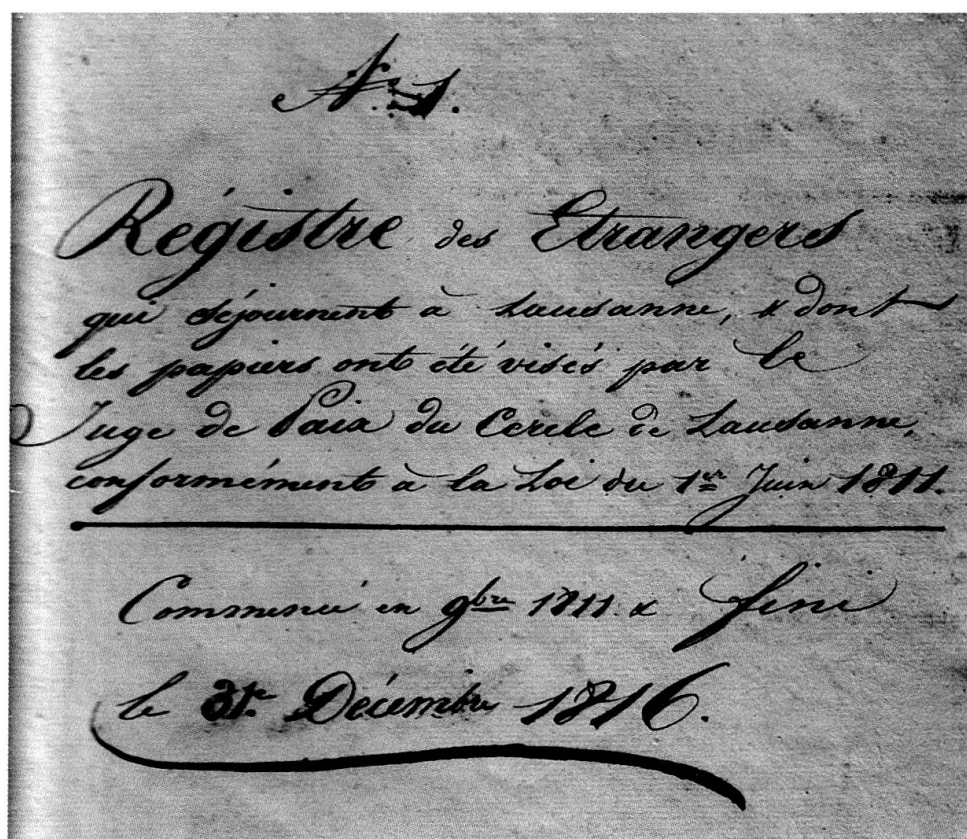 N.° 1.
Régistre des Etrangers
qui séjournent à Lausanne, & dont
les papiers ont été visés par le
Juge de Paix du Cercle de Lausanne,
conformément à la Loi du 1er Juin 1811.
Commencé en 9bre 1811 & fini
le 31e Décembre 1816.